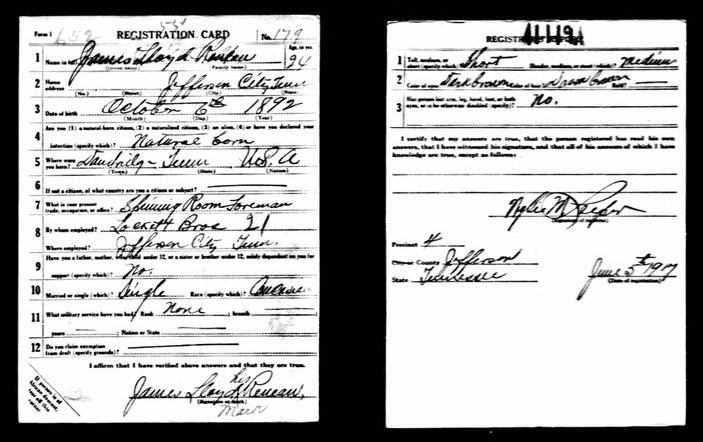 Form 1 652 REGISTRATION CARD No. 179
1 Name in full James Lloyd Age, in yrs. 24
(Given name) (Family name)
2 Home address Jefferson City Tenn
(No.) (Street) (City) (State)
3 Date of birth October 6th 1892
(Month) (Day) (Year)
4 Are you (1) a natural-born citizen, (2) a naturalized citizen, (3) an alien, (4) or have you declared your
intention (specify which)? Natural born
5 Where were you born? Dandridg - Tenn U.S.A
(Town) (State) (Nation)
6 If not a citizen, of what country are you a citizen or subject?
7 What is your present trade, occupation, or office? Spinning Room Foreman
8 By whom employed? Lockett Bros 21
Where employed? Jefferson City Tenn.
9 Have you a father, mother, wife, child under 12, or a sister or brother under 12, solely dependent on you for
support (specify which)? No.
10 Married or single (which)? Single Race (specify which)? Caucasian
11 What military service have you had? Rank None ; branch
years ; Nation or State
12 Do you claim exemption from draft (specify grounds)?
I affirm that I have verified above answers and that they are true.
his
James Lloyd Reneau.
(Signature or mark)
Mark
If person is of African descent, tear off this corner
REGISTRAR'S REPORT
1 Tall, medium, or short (specify which)? Short Slender, medium, or stout (which)? medium
2 Color of eyes? Dark brown Color of hair? Brown Bald?
3 Has person lost arm, leg, hand, foot, or both eyes, or is he otherwise disabled (specify)? No.
I certify that my answers are true, that the person registered has read his own
answers, that I have witnessed his signature, and that all of his answers of which I have
knowledge are true, except as follows:
(Signature of registrar)
Precinct 4
City or County Jefferson
State Tennessee June 5th 1917
(Date of registration)